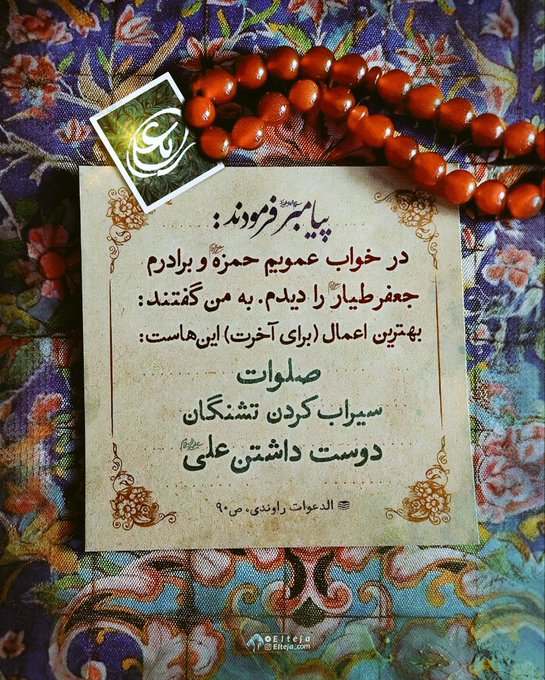 پیامبر فرمودند:
در خواب عمویم حمزه و برادرم
جعفر طیار را دیدم. به من گفتند:
بهترین اعمال (برای آخرت) این‌هاست:
صلوات
سیراب کردن تشنگان
دوست داشتن علی
الدعوات راوندی، ص۹۰
Elteja
Elteja_com